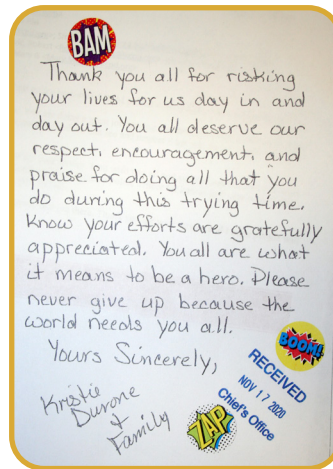 BAM
Thank you all for risking
your lives for us day in and
day out. You all deserve our
respect, encouragement, and
praise for doing all that you
do during this trying time.
Know your efforts are gratefully
appreciated. You all are what
it means to be a hero. Please
never give up because the
world needs you all.
Yours Sincerely,
BOOM!
RECEIVED
NOV 17 2020
Chief's Office
Kristie
Durone
+
Family
ZAP